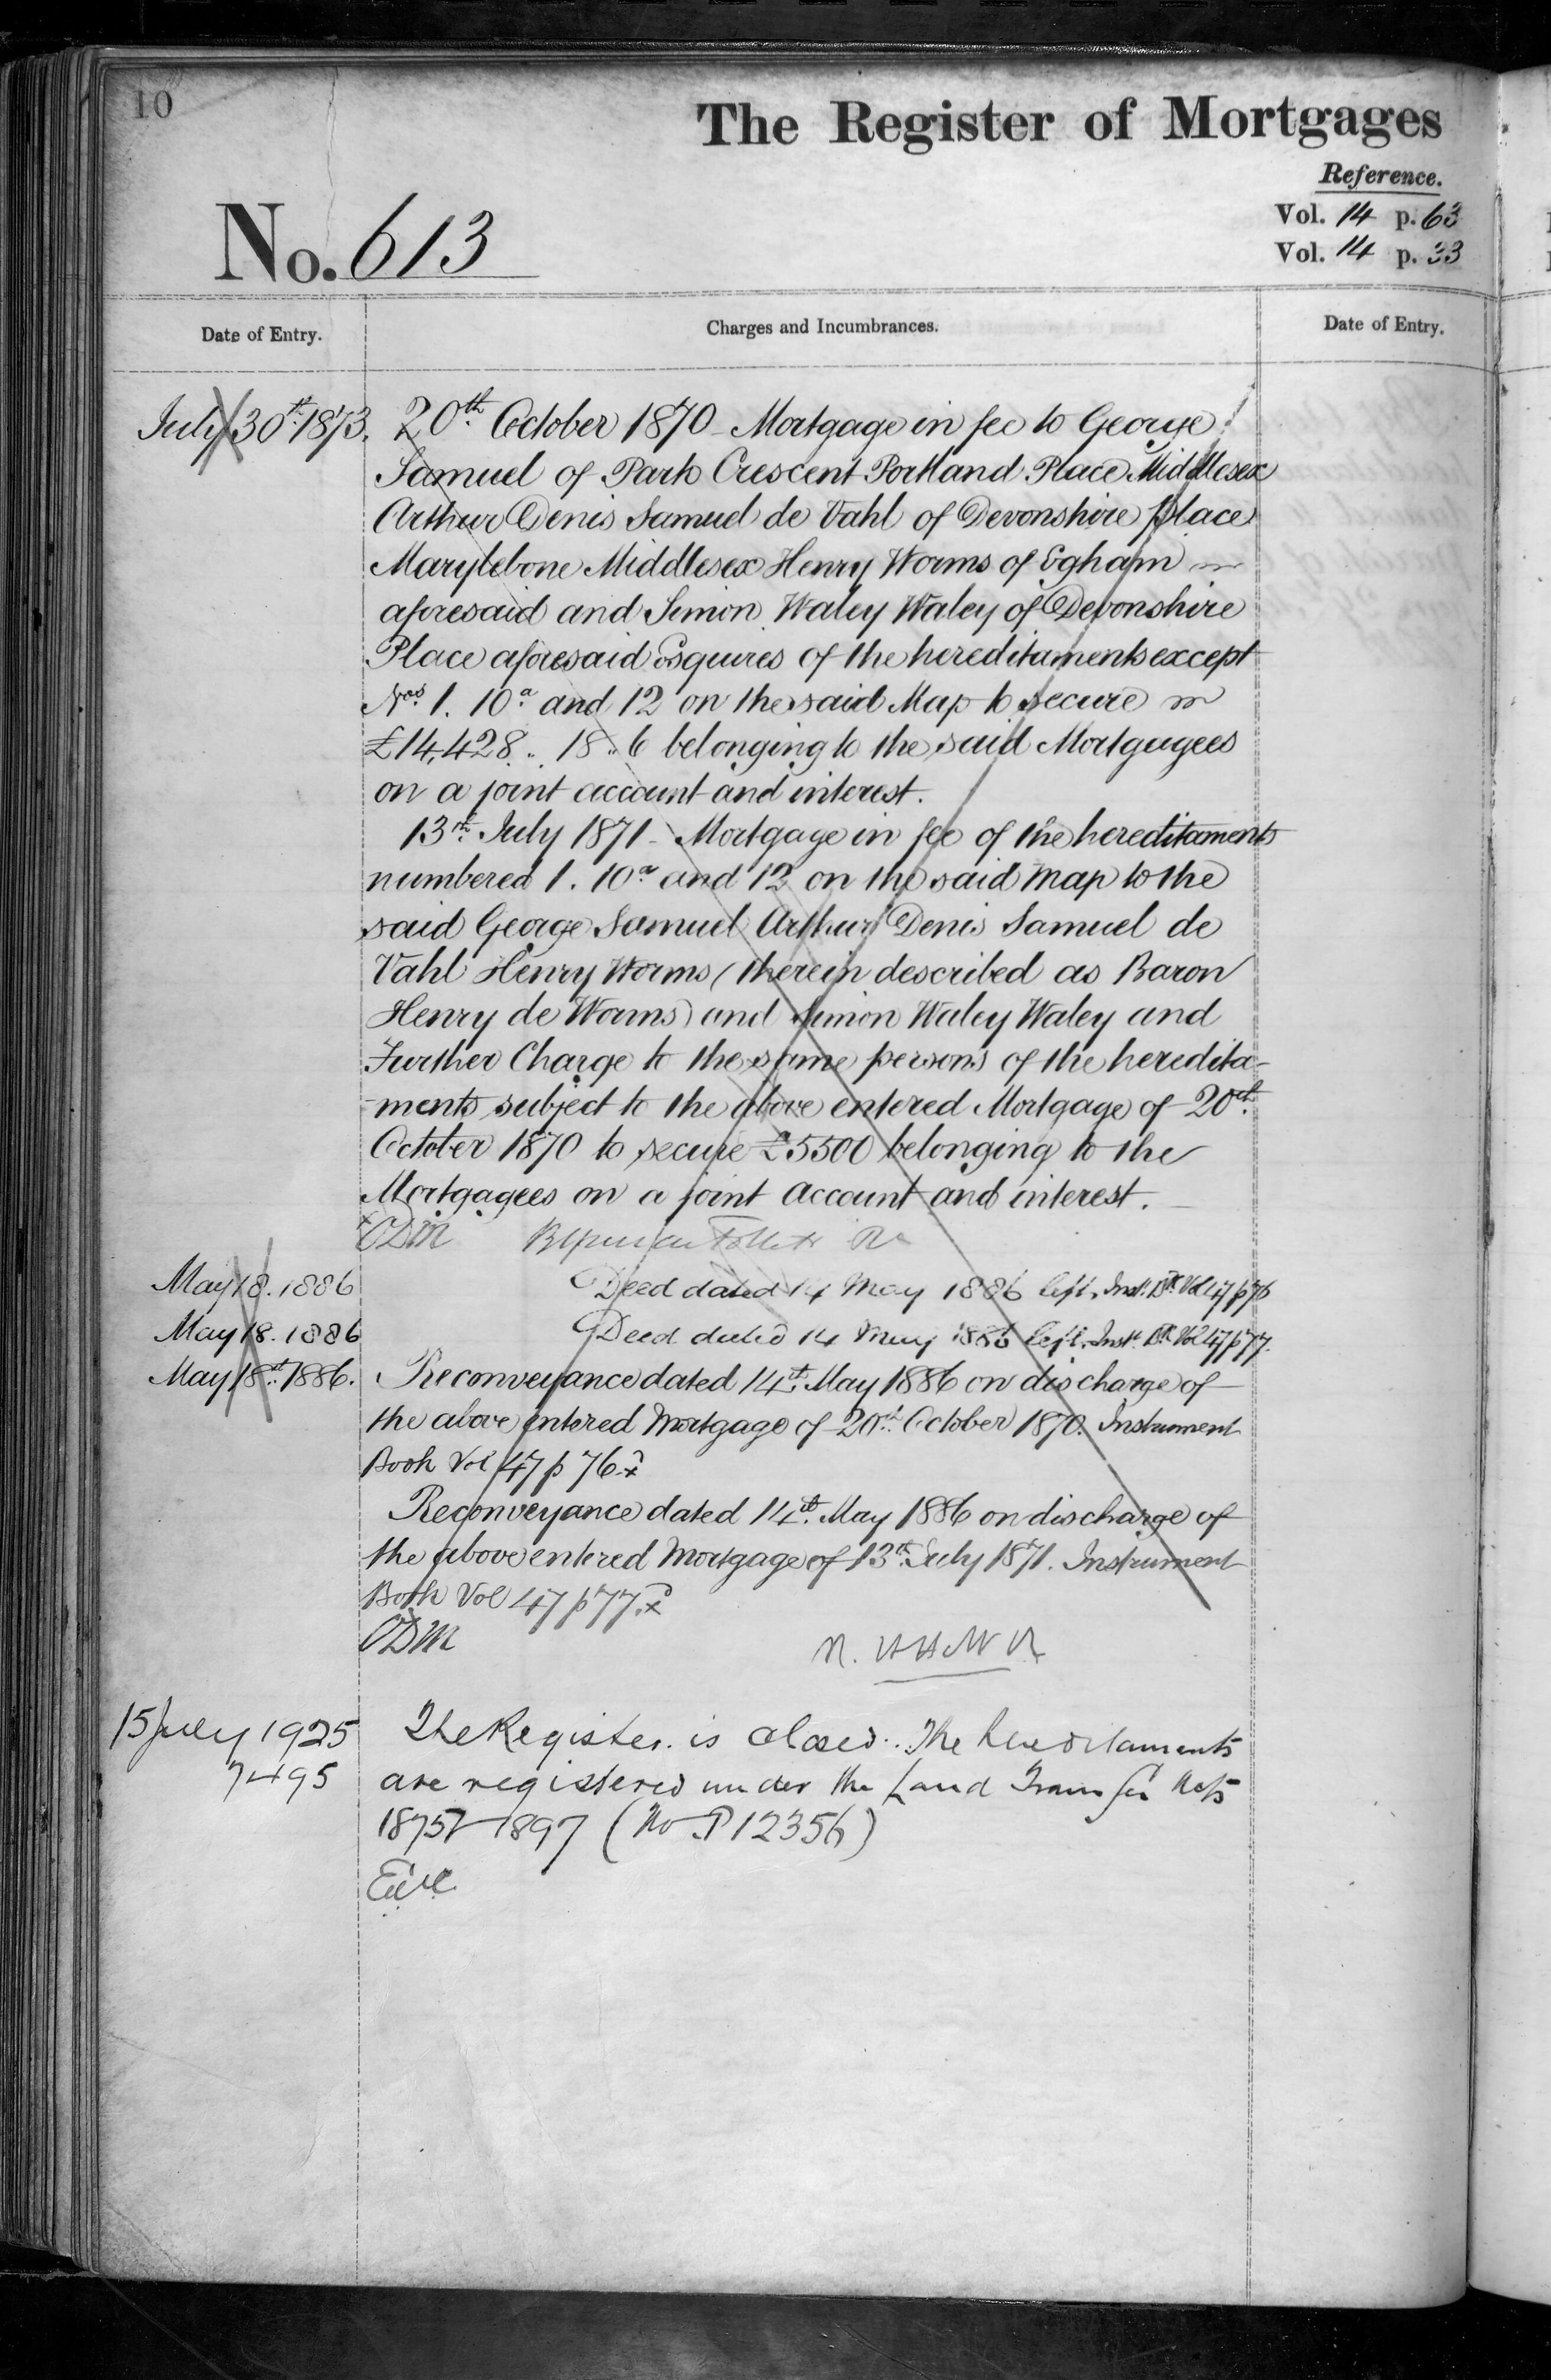 10
The Register of Mortgages
Reference.
No. 613
Vol. 14 p. 63
Vol. 14 p. 33
Date of Entry.
Charges and Incumbrances.
Date of Entry.
July 30th 1873. 20th October 1870 - Mortgage in fee to George
Samuel of Park Crescent Portland Place Middlesex
Arthur Denis Samuel de Vahl of Devonshire place
Marylebone Middlesex Henry Worms of Egham
aforesaid and Simon Waley Waley of Devonshire
Place aforesaid Esquires of the hereditaments except
Nos. 1. 10a and 12 on the said Map to secure
£14,428 .. 18 .. 6 belonging to the said Mortgagees
on a joint account and interest.
13th July 1871 - Mortgage in fee of the hereditaments
numbered 1. 10a and 12 on the said map to the
said George Samuel Arthur Denis Samuel de
Vahl Henry Worms (therein described as Baron
Henry de Worms) and Simon Waley Waley and
Further Charge to the same persons of the heredita-
-ments subject to the above entered Mortgage of 20th
October 1870 to secure £5500 belonging to the
Mortgagees on a joint account and interest.
May 18. 1886 Deed dated 14 May 1886 left. Inst. Bk. Vol 47 p 76
May 18. 1886 Deed dated 14 May 1886 left. Inst. Bk. Vol 47 p 77.
May 18th 1886. Reconveyance dated 14th May 1886 on discharge of
the above entered Mortgage of 20th October 1870. Instrument
Book Vol 47 p 76.x
Reconveyance dated 14th May 1886 on discharge of
the above entered Mortgage of 13th July 1871. Instrument
Book Vol 47 p 77.x
15 July 1925 The Register is closed. The hereditaments
7495 are registered under the Land Transfer Acts
1875 & 1897 (No P12356)